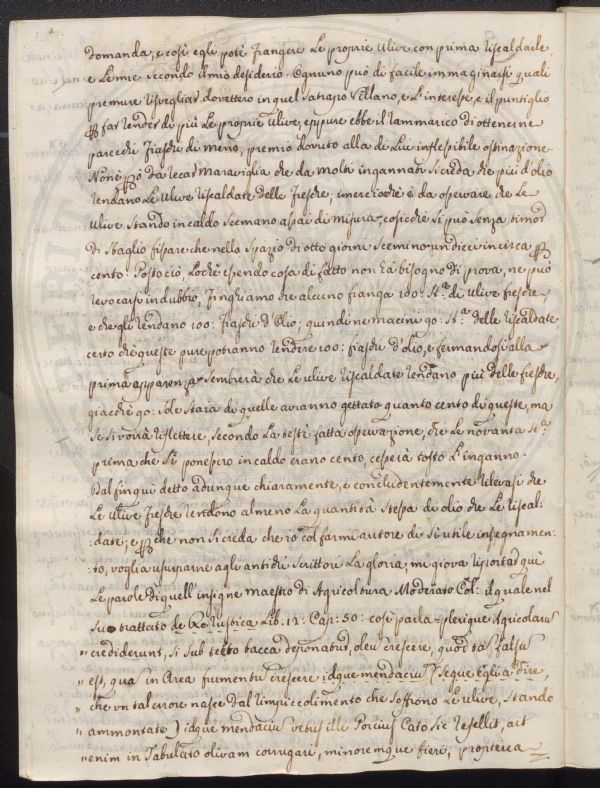 domanda, e così egli potè frangere Le proprie Ulive con prima riscaldarle,
e Le mie secondo il mio desiderio. Ognuno può di facile immaginarsi quali
premure risvegliar dovettero in quel Satrapo Villano, e L'interesse, e il puntiglio
far render di più Le proprie ulive, eppure ebbe il rammarico di ottenerne
parecchi fiaschi di meno, premio dovuto alla di Lui inflessibile ostinazione.
Non è però da recar Maraviglia che da molti ingannati si creda che più d'olio
rendano Le Ulive riscaldate delle fresche; imerciocchè è da osservare che Le
Ulive stando in caldo scemano assai di misura, cosicchè si può senza timor
di sbaglio fissare che nello spazio di otto giorni scemino un dieci incirca per
cento. Posto ciò, Locchè essendo cosa di fatto non hà bisogno di prova, ne può
revocarsi in dubbio, finghiamo che alcuno franga 100: St.a di Ulive fresche,
e che gli rendano 100: fiaschi d'Olio; quindi ne macini 90: St.a delle riscaldate
certo che queste pure potranno rendere 100: fiaschi d'olio, e fermandosi alla
prima apparenza sembrerà che Le ulive riscaldate rendano più delle fresche,
giacchè 90: sole Staia di quelle avranno gettato quanto cento di queste, ma
se si vorrà riflettere, secondo La testè fatta osservazione, che Le novanta St.a
prima che si ponessero in caldo erano cento, cesserà tosto L'inganno.
Dal fin quì detto adunque chiaramente, e concludentemente rilevasi che
Le Ulive fresche rendono almeno La quantità stessa di olio che Le riscal-
:date; e perchè non si creda che io col farmi autore di sì utile insegnamen-
:to, voglia usurpare agli antichi Scrittori La gloria; mi giova riportar quì
Le parole di quell'insigne maestro di Agricoltura Moderato Col: il quale nel
suo trattato de Re rustica Lib. 12: Cap: 50: così parla = plerique Agricolarum
" crediderunt, si sub tecto bacca deponatur, oleum crescere, quod tam falsum
" est, quam in Area frumentum crescere idque mendacium (Segue Egli a dire,
" che un tal errore nasce dal rimpiccolimento che soffrono Le ulive, stando
" ammontate) idque mendacium vetus ille Porcius Cato sic refellit, ait
" enim in Tabulato olivam corrugari, minoremque fieri, propterea